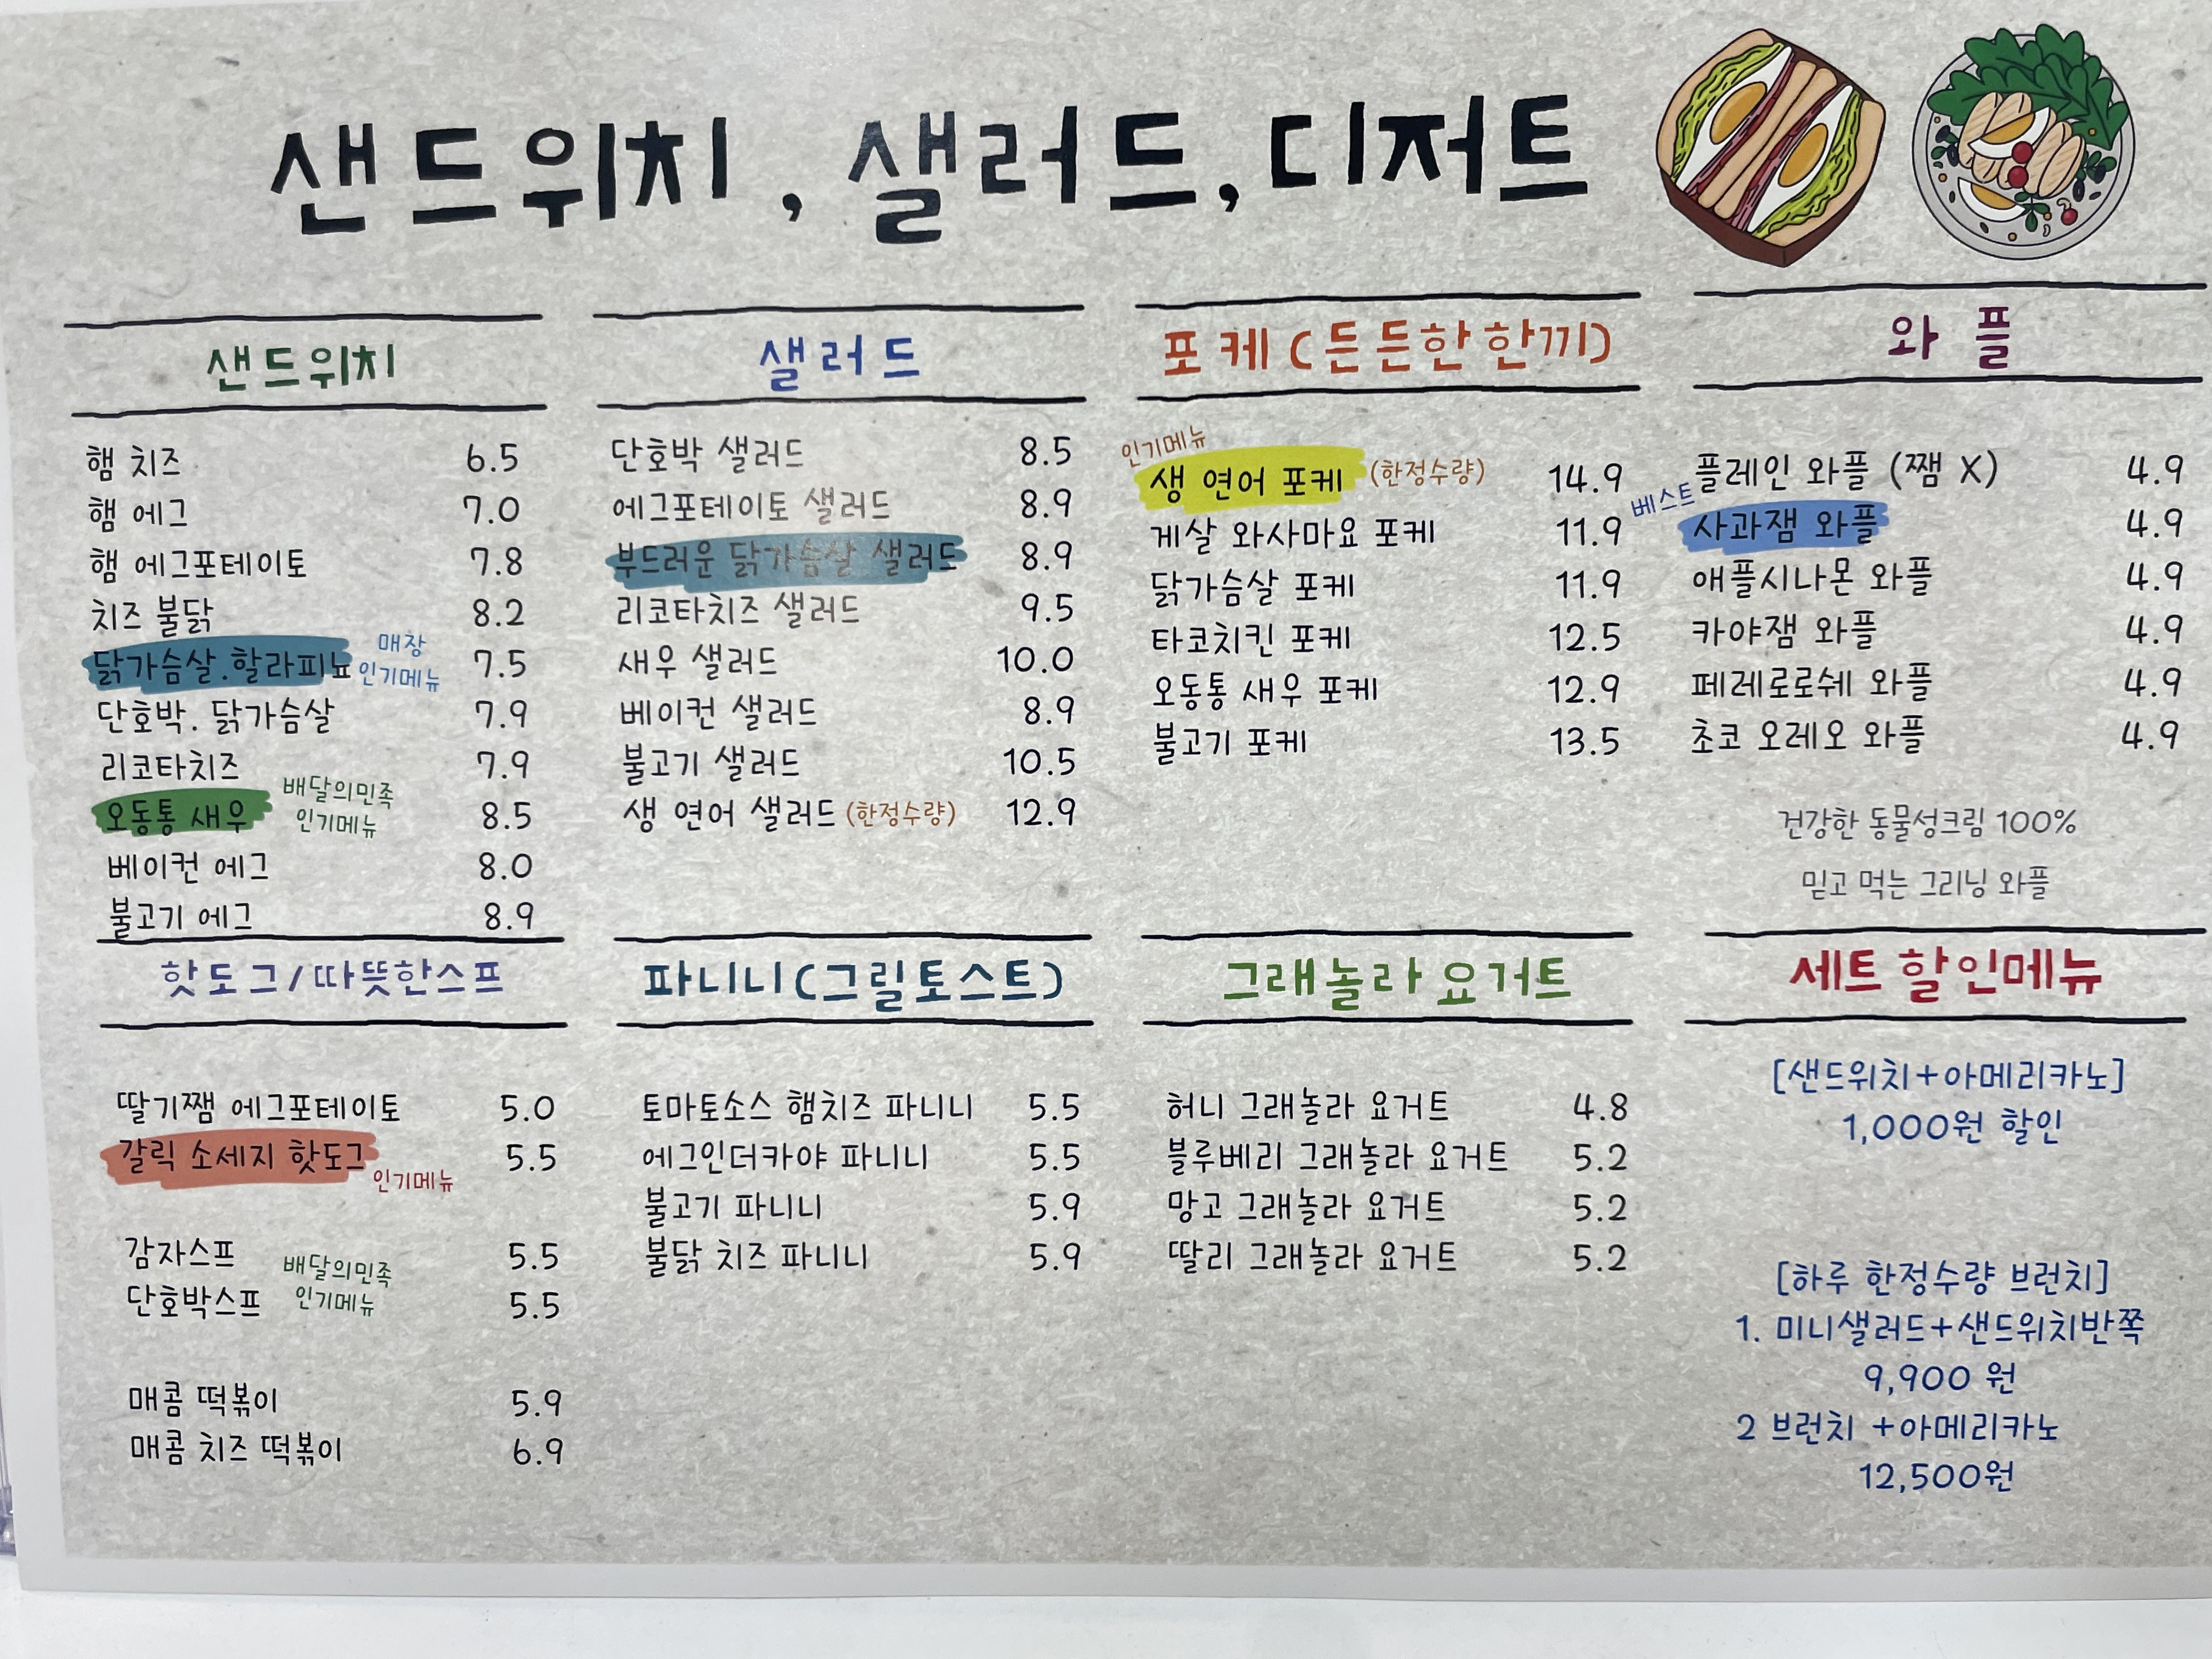 샌드위치, 샐러드, 디저트
샌드위치
햄 치즈 6.5
햄 에그 7.0
햄 에그포테이토 7.8
치즈 불닭 8.2
닭가슴살.할라피뇨 매장 인기메뉴 7.5
단호박. 닭가슴살 7.9
리코타치즈 7.9
오동통 새우 배달의민족 인기메뉴 8.5
베이컨 에그 8.0
불고기 에그 8.9
샐러드
단호박 샐러드 8.5
에그포테이토 샐러드 8.9
부드러운 닭가슴살 샐러드 8.9
리코타치즈 샐러드 9.5
새우 샐러드 10.0
베이컨 샐러드 8.9
불고기 샐러드 10.5
생 연어 샐러드 (한정수량) 12.9
포케(든든한한끼)
인기메뉴
생 연어 포케 (한정수량) 14.9
게살 와사마요 포케 11.9
닭가슴살 포케 11.9
타코치킨 포케 12.5
오동통 새우 포케 12.9
불고기 포케 13.5
와플
플레인 와플 (쨈 X) 4.9
베스트
사과잼 와플 4.9
애플시나몬 와플 4.9
카야잼 와플 4.9
페레로로쉐 와플 4.9
초코 오레오 와플 4.9
건강한 동물성크림 100%
믿고 먹는 그리닝 와플
핫도그/따뜻한스프
딸기쨈 에그포테이토 5.0
갈릭 소세지 핫도그 5.5
인기메뉴
감자스프 5.5
배달의민족
인기메뉴
단호박스프 5.5
매콤 떡볶이 5.9
매콤 치즈 떡볶이 6.9
파니니(그릴토스트)
토마토소스 햄치즈 파니니 5.5
에그인더카야 파니니 5.5
불고기 파니니 5.9
불닭 치즈 파니니 5.9
그래놀라 요거트
허니 그래놀라 요거트 4.8
블루베리 그래놀라 요거트 5.2
망고 그래놀라 요거트 5.2
딸리 그래놀라 요거트 5.2
세트 할인메뉴
[샌드위치+아메리카노]
1,000원 할인
[하루 한정수량 브런치]
1. 미니샐러드+샌드위치반쪽
9,900 원
2 브런치 +아메리카노
12,500원